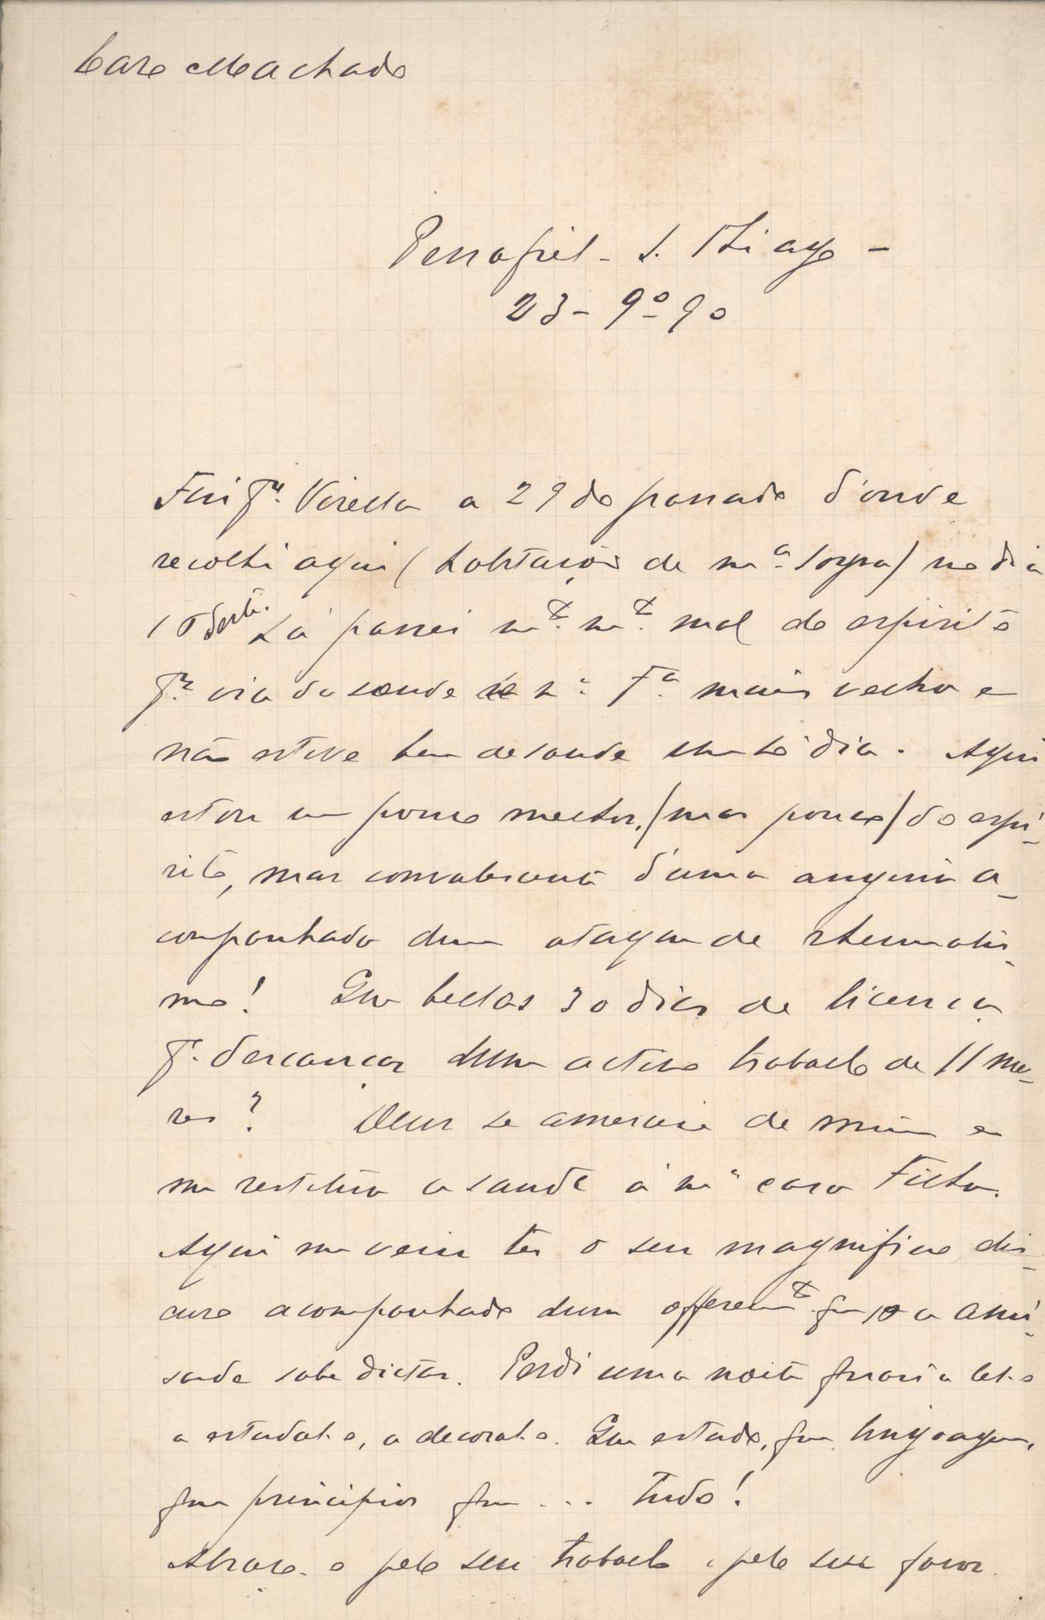 Caro Machado
Penafiel - S. Thiago -
23 - 9º 90
Fui pª. Vizella a 29 do passado d'onde
recolhi aqui (habitação de mª. sogra) no dia
10 deste. Lá passei mᵗº. mᵗº. mal do espirito
pʳ. via da saude de mª. Fª. mais velha e
não esteve bem de saude um só dia. Aqui
estou um pouco melhor, (mas pouco) do espi-
rito, mas convalescente d'uma angina a-
companhada dum ataque de rheumatis-
mo! Que bellos 30 dias de licença
pª. descançar dum activo trabalho de 11 me-
zes? Deus se amerceie de mim e
me restitua a saude á mª cara Filha.
Aqui me veiu ter o seu magnifico dis-
curso acompanhado dum offerecimᵗº. que só a ami-
sade sabe dictar. Perdi uma noite quasi a lel-o
a estudal-o, a decoral-o. Que estudo, que linguagem,
que principios que ... tudo!
Abraço-o pelo seu trabalho e pelo seu favor.